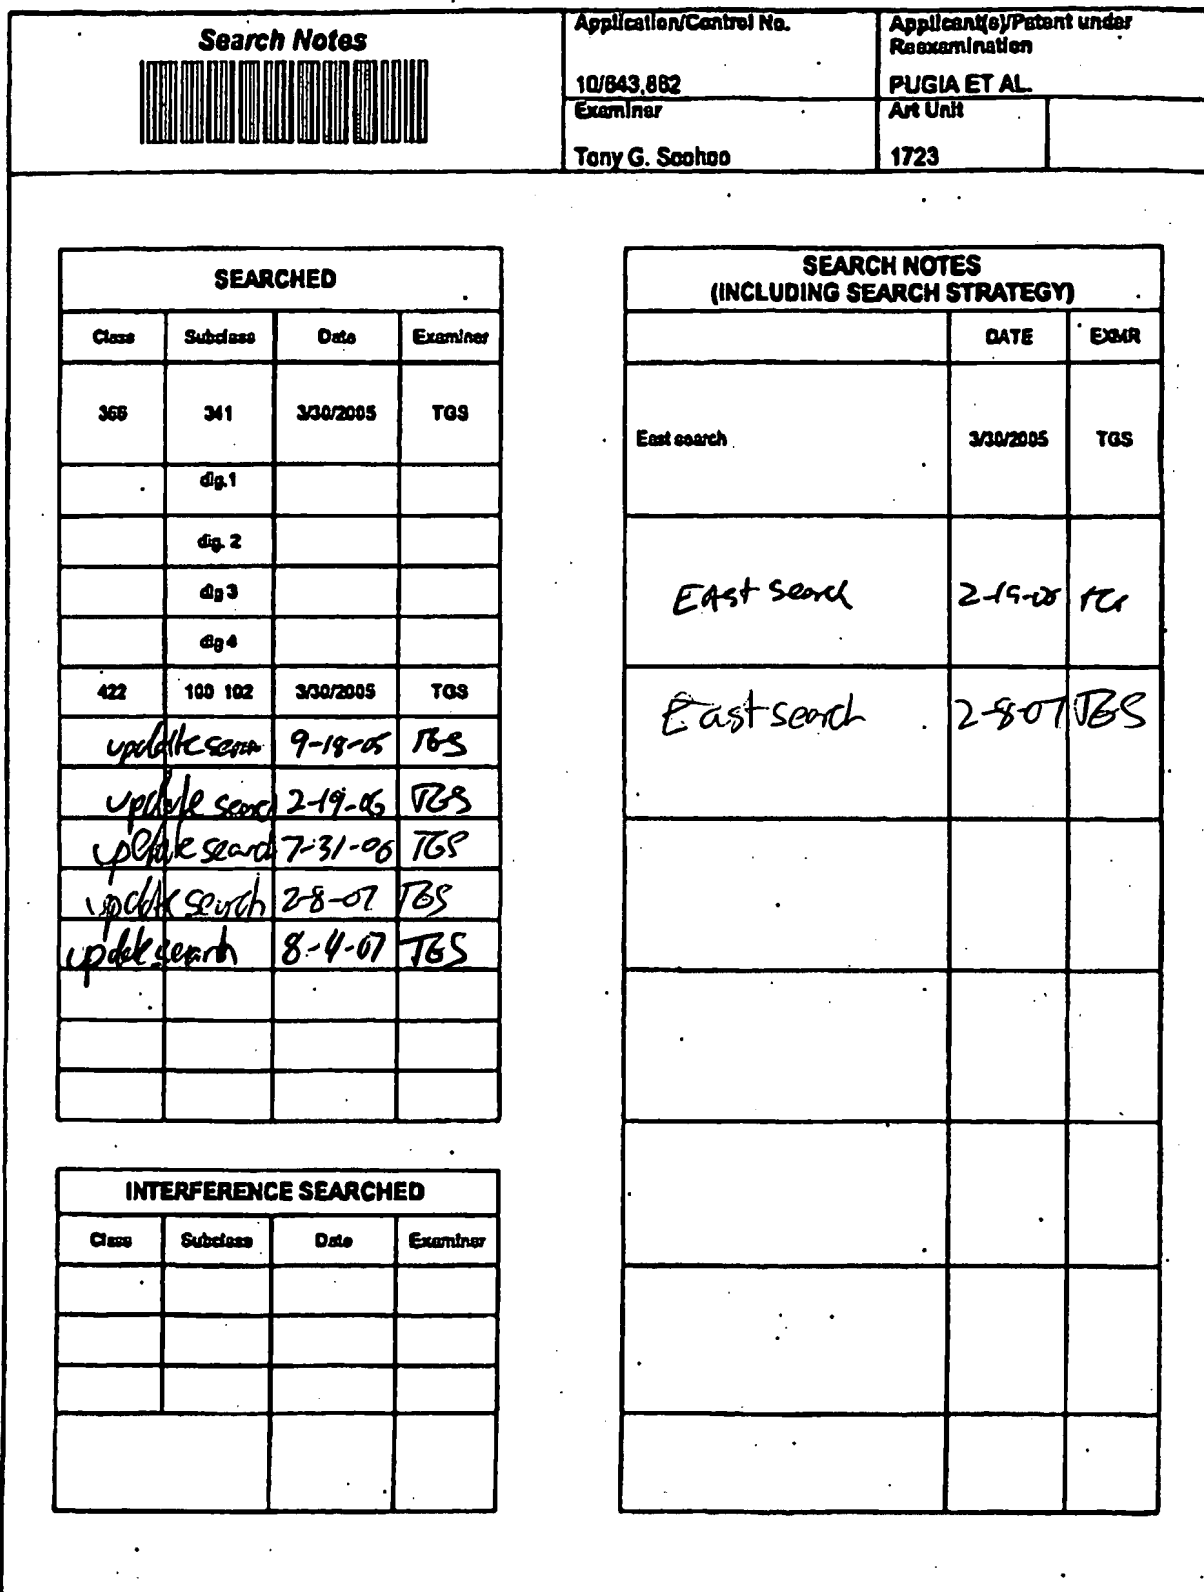 Search Notes
Application/Control No.
10/643,862
Applicant(s)/Patent under
Reexamination
PUGIA ET AL.
Examiner
Tony G. Soohoo
Art Unit
1723
SEARCHED
Class Subclass Date Examiner
366 341 3/30/2005 TGS
dig.1
dig. 2
dig 3
dig 4
422 100 102 3/30/2005 TGS
update search 9-18-05 TGS
update search 2-19-06 TGS
update search 7-31-06 TGS
update search 2-8-07 TGS
update search 8-4-07 TGS
INTERFERENCE SEARCHED
Class Subclass Date Examiner
SEARCH NOTES
(INCLUDING SEARCH STRATEGY)
DATE EXMR
East search 3/30/2005 TGS
East search 2-19-06 TGS
East search 2-8-07 TGS